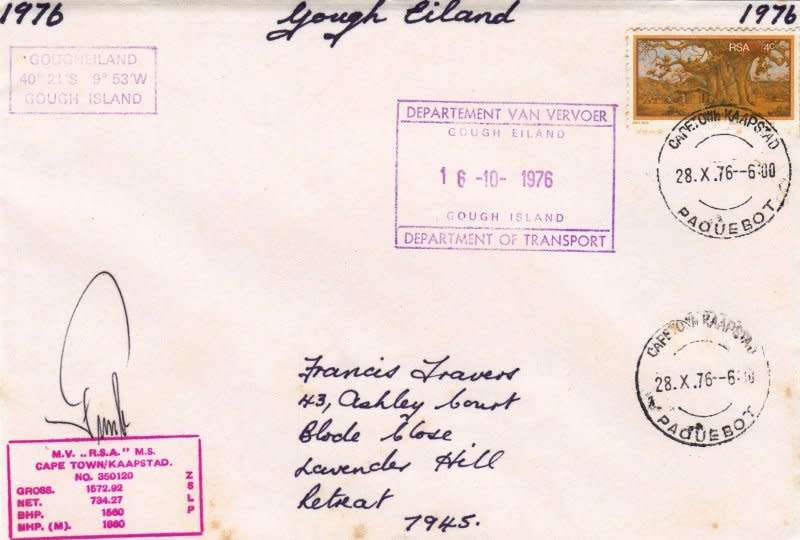 1976
Gough Eiland
1976
GOUGHEILAND
40° 21'S 9° 53'W
GOUGH ISLAND
RSA 4c
DEPARTEMENT VAN VERVOER
GOUGH EILAND
16 -10- 1976
GOUGH ISLAND
DEPARTMENT OF TRANSPORT
CAPETOWN KAAPSTAD
28.X.76--6:00
PAQUEBOT
CAPETOWN KAAPSTAD
28.X.76--6:
PAQUEBOT
Francis Travers
43, Ashley Court
Blode Close
Lavender Hill
Retreat
7945.
M.V. „R.S.A." M.S.
CAPE TOWN/KAAPSTAD.
NO. 350120
GROSS. 1572.92
NET. 734.27
BHP. 1560
MHP. (M). 1860
ZSLP